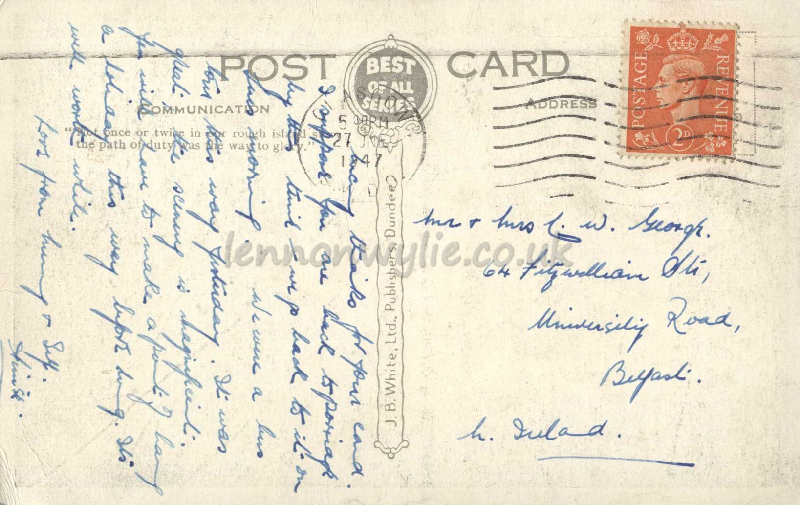 POST CARD
BEST
OF ALL
SERIES
COMMUNICATION
ADDRESS
"Not once or twice in our rough island
the path of duty was the way to glory."
J. B. White, Ltd., Publishers, Dundee
POSTAGE
REVENUE
2D
5 PM
27
1947
Many thanks for your card.
I suppose you are back to porridge
by this time. We go back to it on
this morning. We were a bus
tour this way yesterday. It was
great. The scenery is magnificent.
You will have to make a point of having
a holiday this way before long. It's
well worth while.
Love from & Self.
Mr & Mrs C. W. George.
64 Fitzwilliam Sts,
University Road,
Belfast.
N. Ireland.
lennonwylie.co.uk